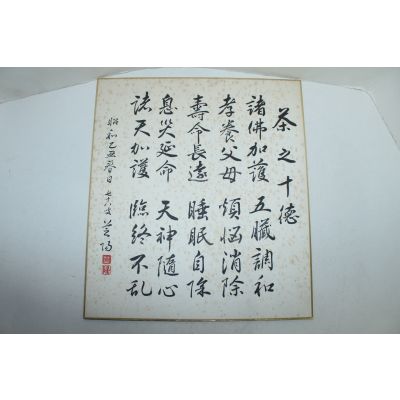 茶之十德
諸佛加護 五臓調和
孝養父母 煩悩消除
壽命長遠 睡眠自除
息災延命 天神隨心
諸天加護 臨終不乱
昭和己亥春日